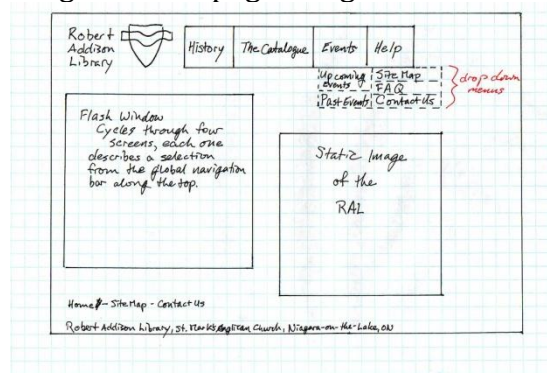 Robert
Addison
Library
History
The Catalogue
Events
Help
Upcoming
Events
Past Events
Site Map
FAQ
Contact Us
drop down
menus
Flash Window
Cycles through four
screens, each one
describes a selection
from the global navigation
bar along the top.
Static Image
of the
RAL
Home - Site Map - Contact Us
Robert Addison Library, St. Mark's Anglican Church, Niagara-on-the-Lake, ON